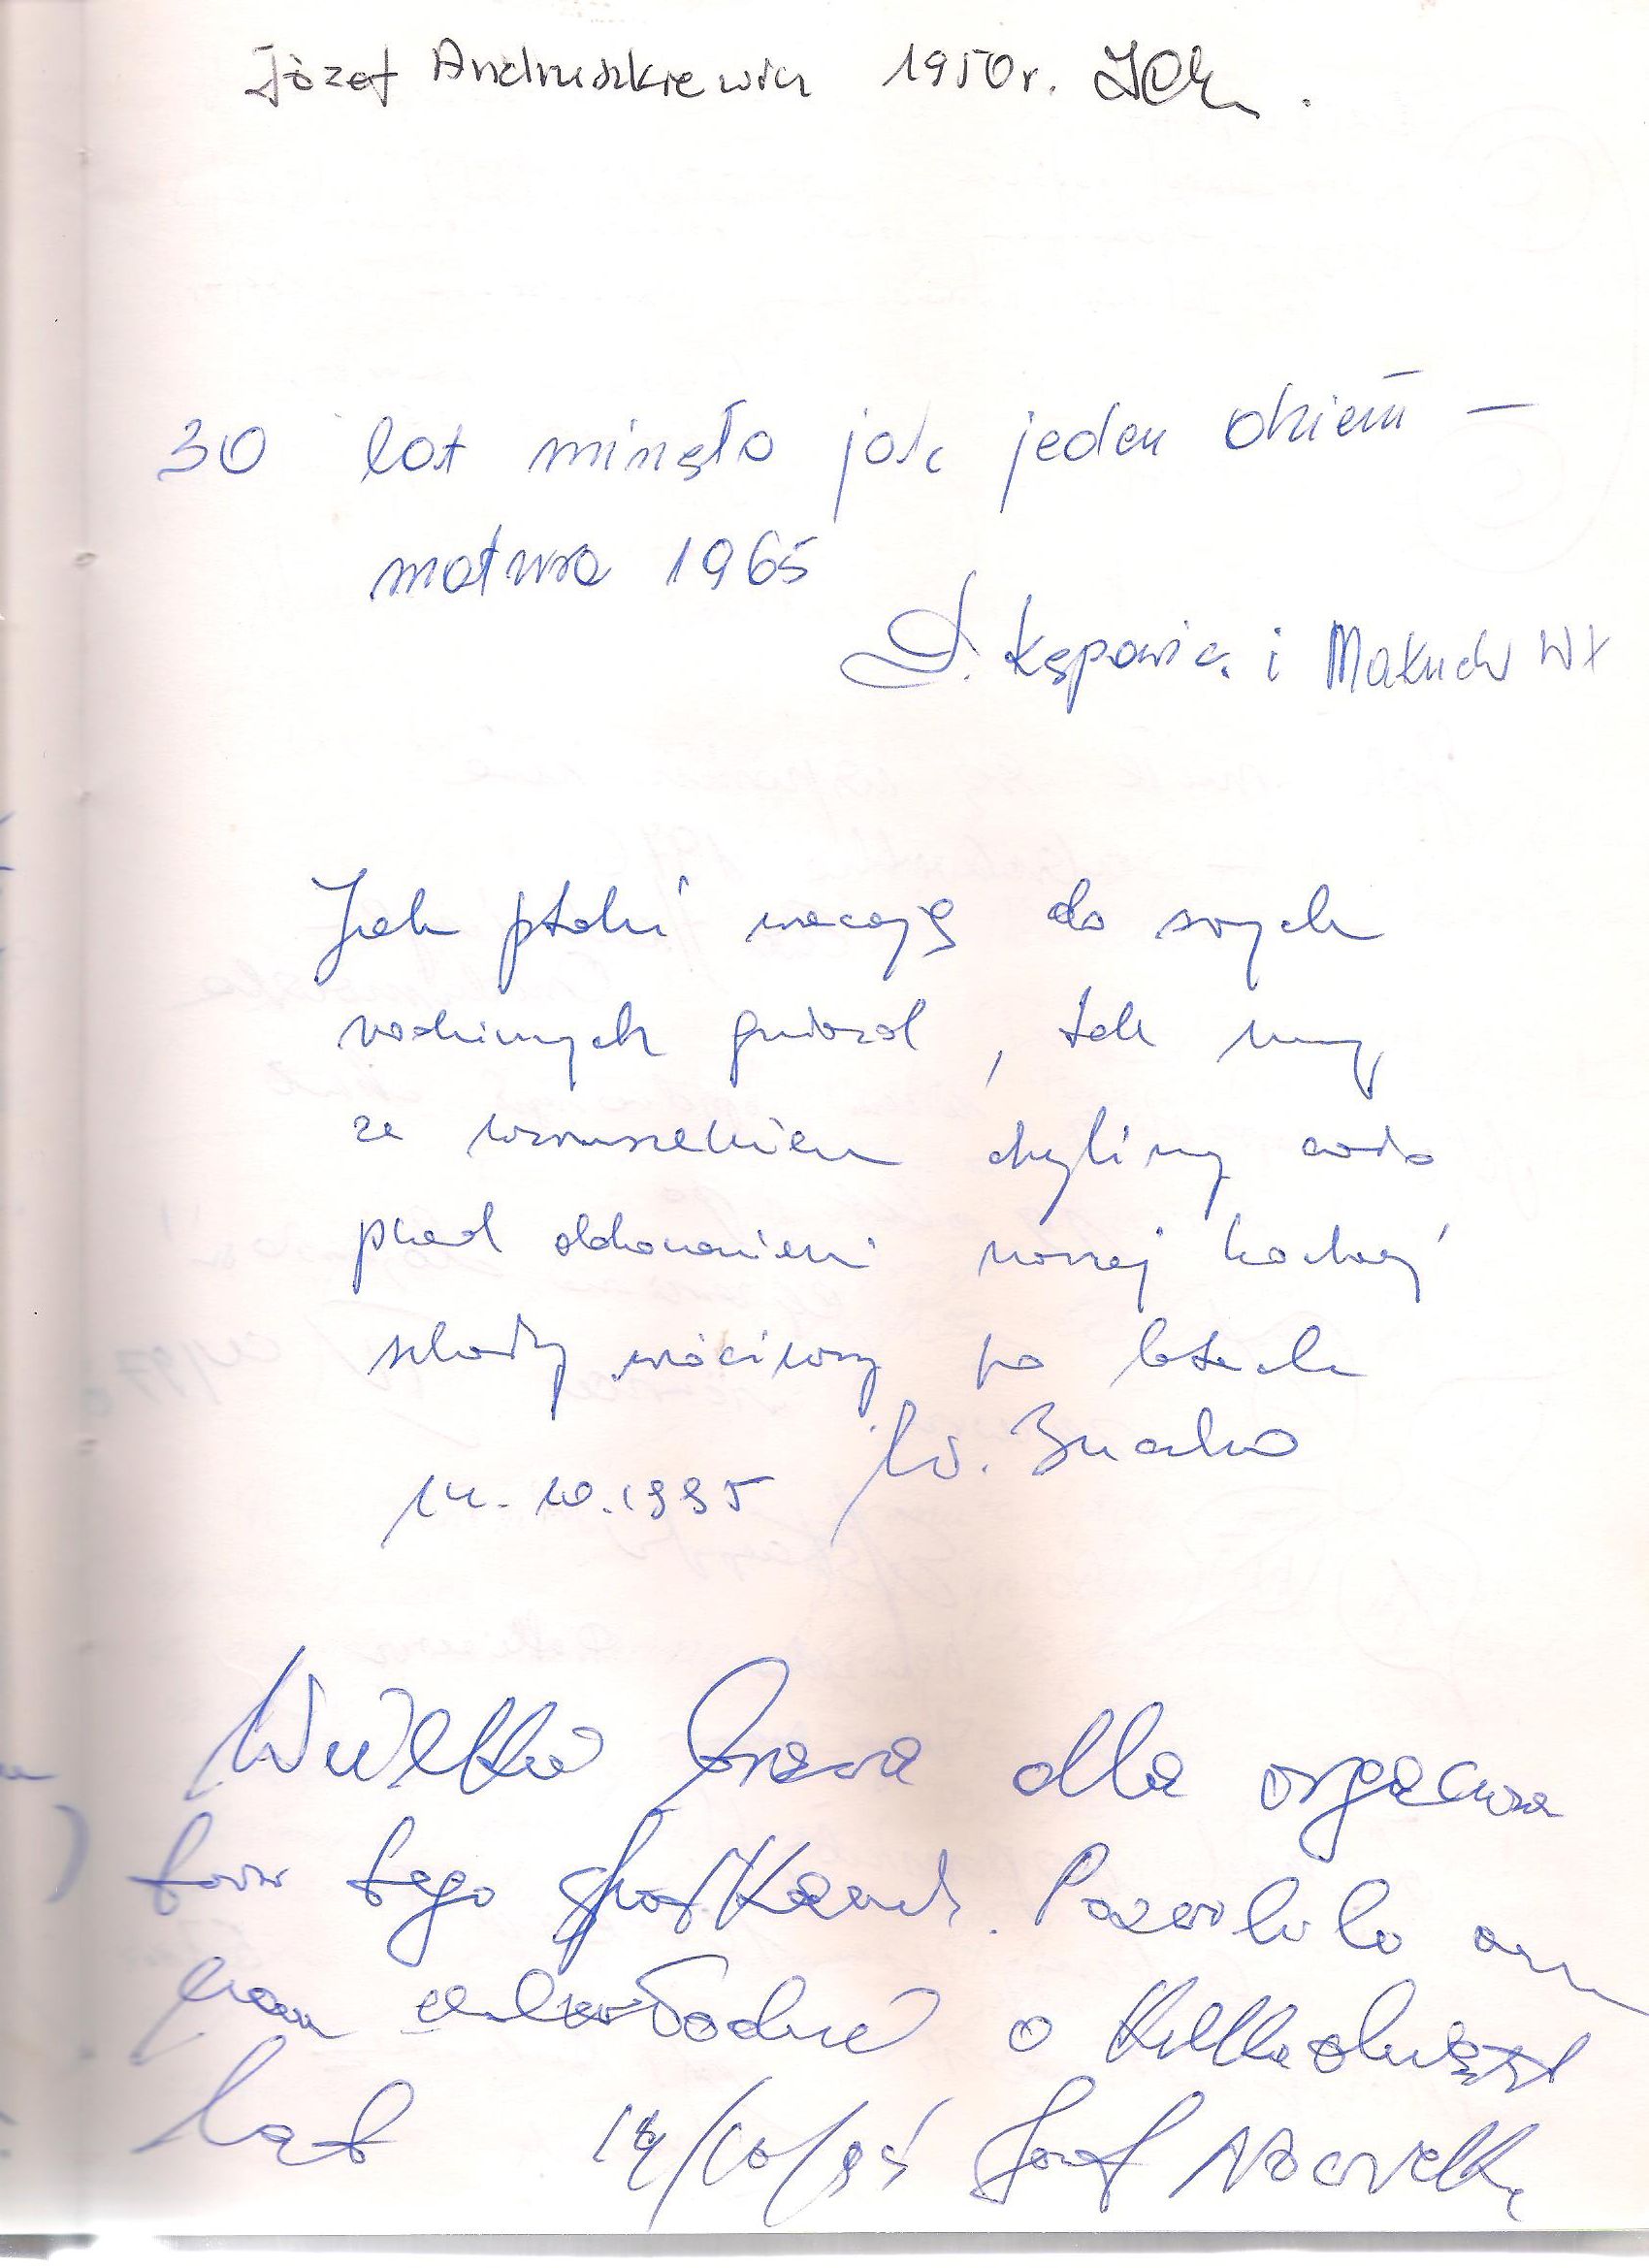 Józef Andruszkiewicz 1950r.
30 lat minęło jak jeden dzień –
matura 1965
Kępowicz i Makuch Wł
Jak ptaki wracają do swych
rodzinnych gniazd, tak my
ze wzruszeniem chylimy czoła
przed dokonaniem naszej kochanej
szkoły wróciwszy po latach
14.10.1995 W. Znachko
Wielkie brawa dla organiza
torów tego spotkania. Pozwoliło
nam odmłodnieć o kilkadziesiąt
lat 14/10/95 Józef